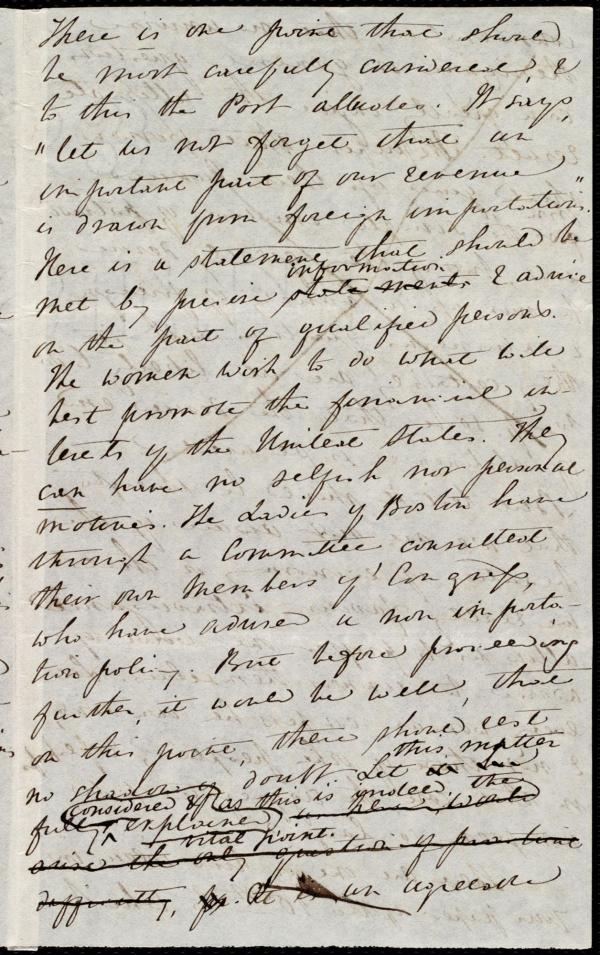 There is one point that should
be most carefully considered, &
to this the Post alludes. It says,
"let us not forget that an
important part of our revenue
is drawn from foreign importations."
Here is a statement that should be
information
met by precise state ments & advice
on the part of qualified persons.
The women wish to do what will
best promote the financial in-
terests of the United States. They
can have no selfish nor personal
motives. The Ladies of Boston have
through a Committee consulted
their own Members of Congress,
who have advised a non importa-
tion policy. But before proceeding
further, it would be well, that
on this point, there should rest
this matter
no shadow of doubt. Let it be
considered & as this is indeed, the
fully explained, in here, would
vital point.
arise the only question of practical
difficulty, for. It is an agreeable